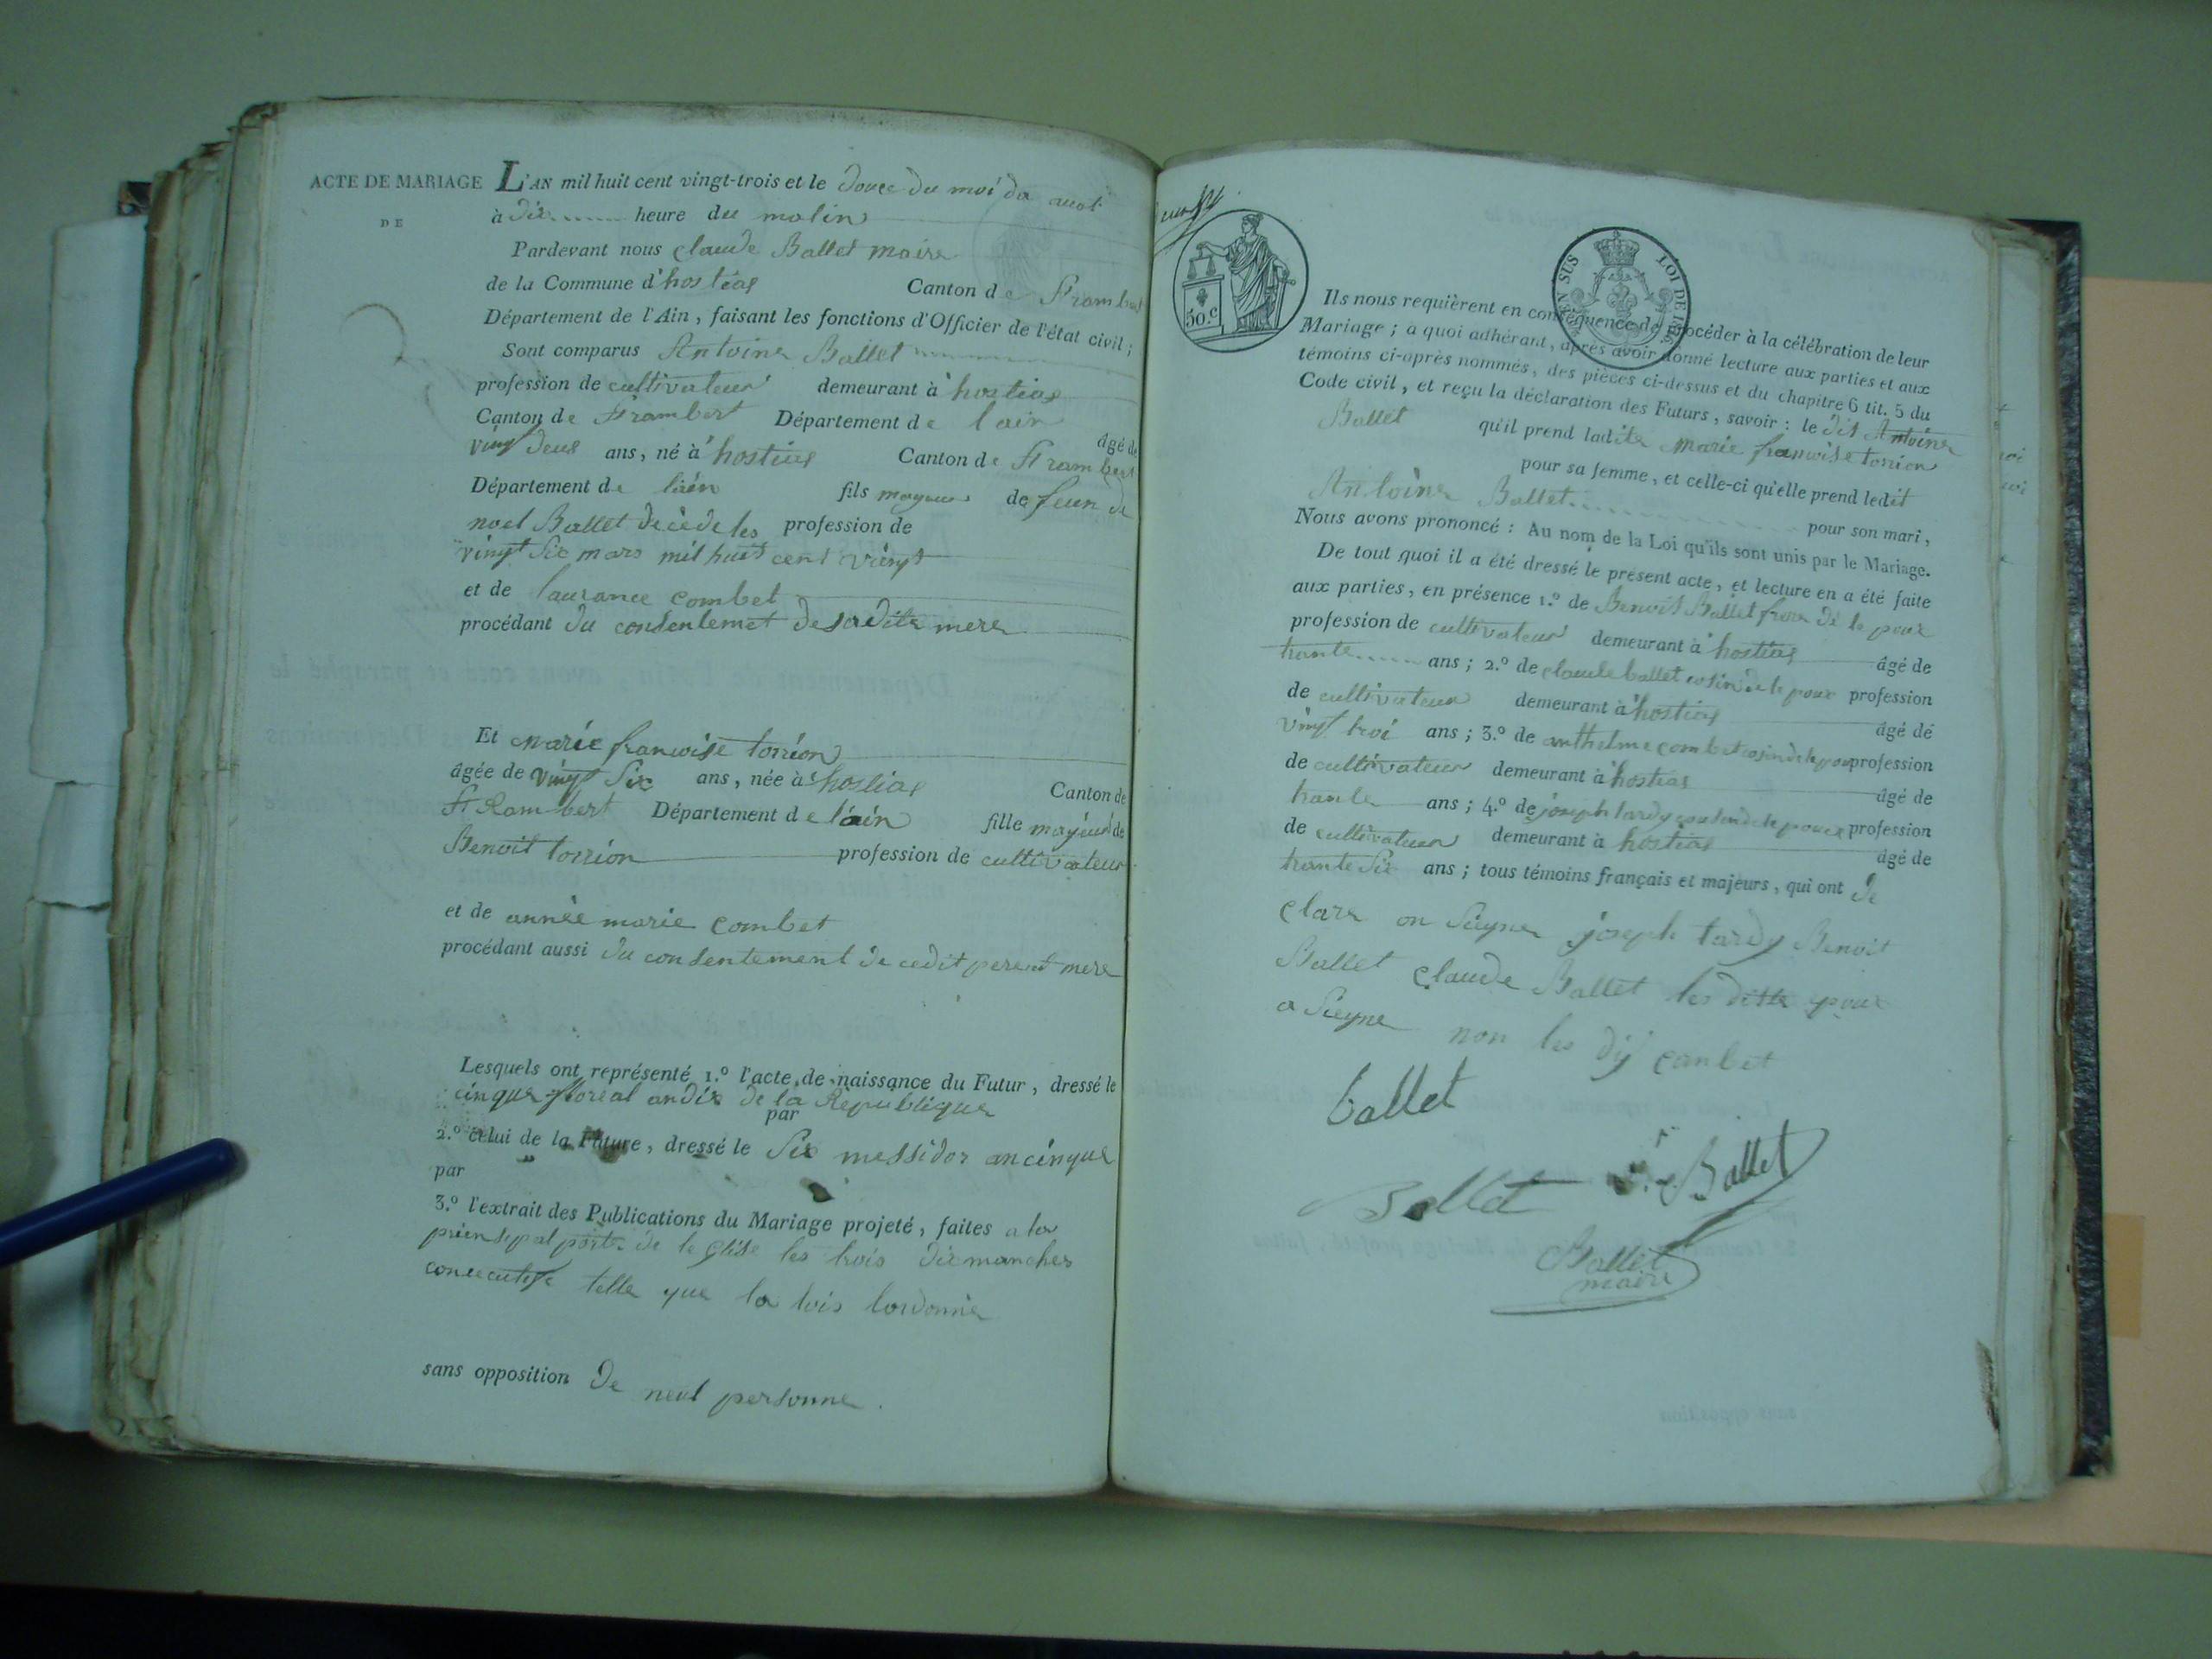 ACTE DE MARIAGE
DE
L'AN mil huit cent vingt-trois et le douce du moi da auot
à dix heure du matin
Pardevant nous claude Ballet maire
de la Commune d'hostias Canton de St rambert
Département de l'Ain, faisant les fonctions d'Officier de l'état civil;
Sont comparus Antoine Ballet
profession de cultivateur demeurant à hostias
Canton de St rambert Département de lain âgé de
vingt deux ans, né à hostias Canton de St rambert
Département de lain fils mayeur de feun de
noel Ballet decède les profession de
vingt six mars mil huit cent vingt
et de laurance Combet
procédant du consentemet de sadite mere
Et marie franwise torrion
âgée de vingt six ans, née à hostias Canton de
St Rambert Département de lain fille mayeur de
Benoit torrion profession de cultivateur
et de année marie Combet
procédant aussi du consentement de cedit pere et mere
Lesquels ont représenté 1.º l'acte de naissance du Futur, dressé le
cinque floreal an dix de la Republique
par
2.º celui de la Future, dressé le six messidor an cinque
par
3.º l'extrait des Publications du Mariage projeté, faites a la
prinsipal porte de le Glise les trois dimanches
consecutife telle que la lois lordonne
sans opposition de neul personne.
50.c
EN SUS LOI DE 1816
Ils nous requièrent en conséquence de procéder à la célébration de leur
Mariage; à quoi adhérant, après avoir donné lecture aux parties et aux
témoins ci-après nommés, des pièces ci-dessus et du chapitre 6 tit. 5 du
Code civil, et reçu la déclaration des Futurs, savoir: le dit Antoine
Ballet qu'il prend ladite marie franwise torrion
pour sa femme, et celle-ci qu'elle prend ledit
Antoine Ballet pour son mari,
Nous avons prononcé: Au nom de la Loi qu'ils sont unis par le Mariage.
De tout quoi il a été dressé le présent acte, et lecture en a été faite
aux parties, en présence 1.º de Benoit Ballet frere de le poux
profession de cultivateur demeurant à hostias âgé de
trante ans; 2.º de claude ballet cosin de le poux profession
de cultivateur demeurant à hostias âgé de
vingt troi ans; 3.º de anthelme combet cosin de le poux profession
de cultivateur demeurant à hostias âgé de
trante ans; 4.º de joseph tardy cousin de le poux profession
de cultivateur demeurant à hostias âgé de
trante six ans; tous témoins français et majeurs, qui ont de
clare on signe joseph tardy Benoit
Ballet claude Ballet les ditte poux
a signe non les dy combet
ballet
Ballet
Ballet
Ballet
maire